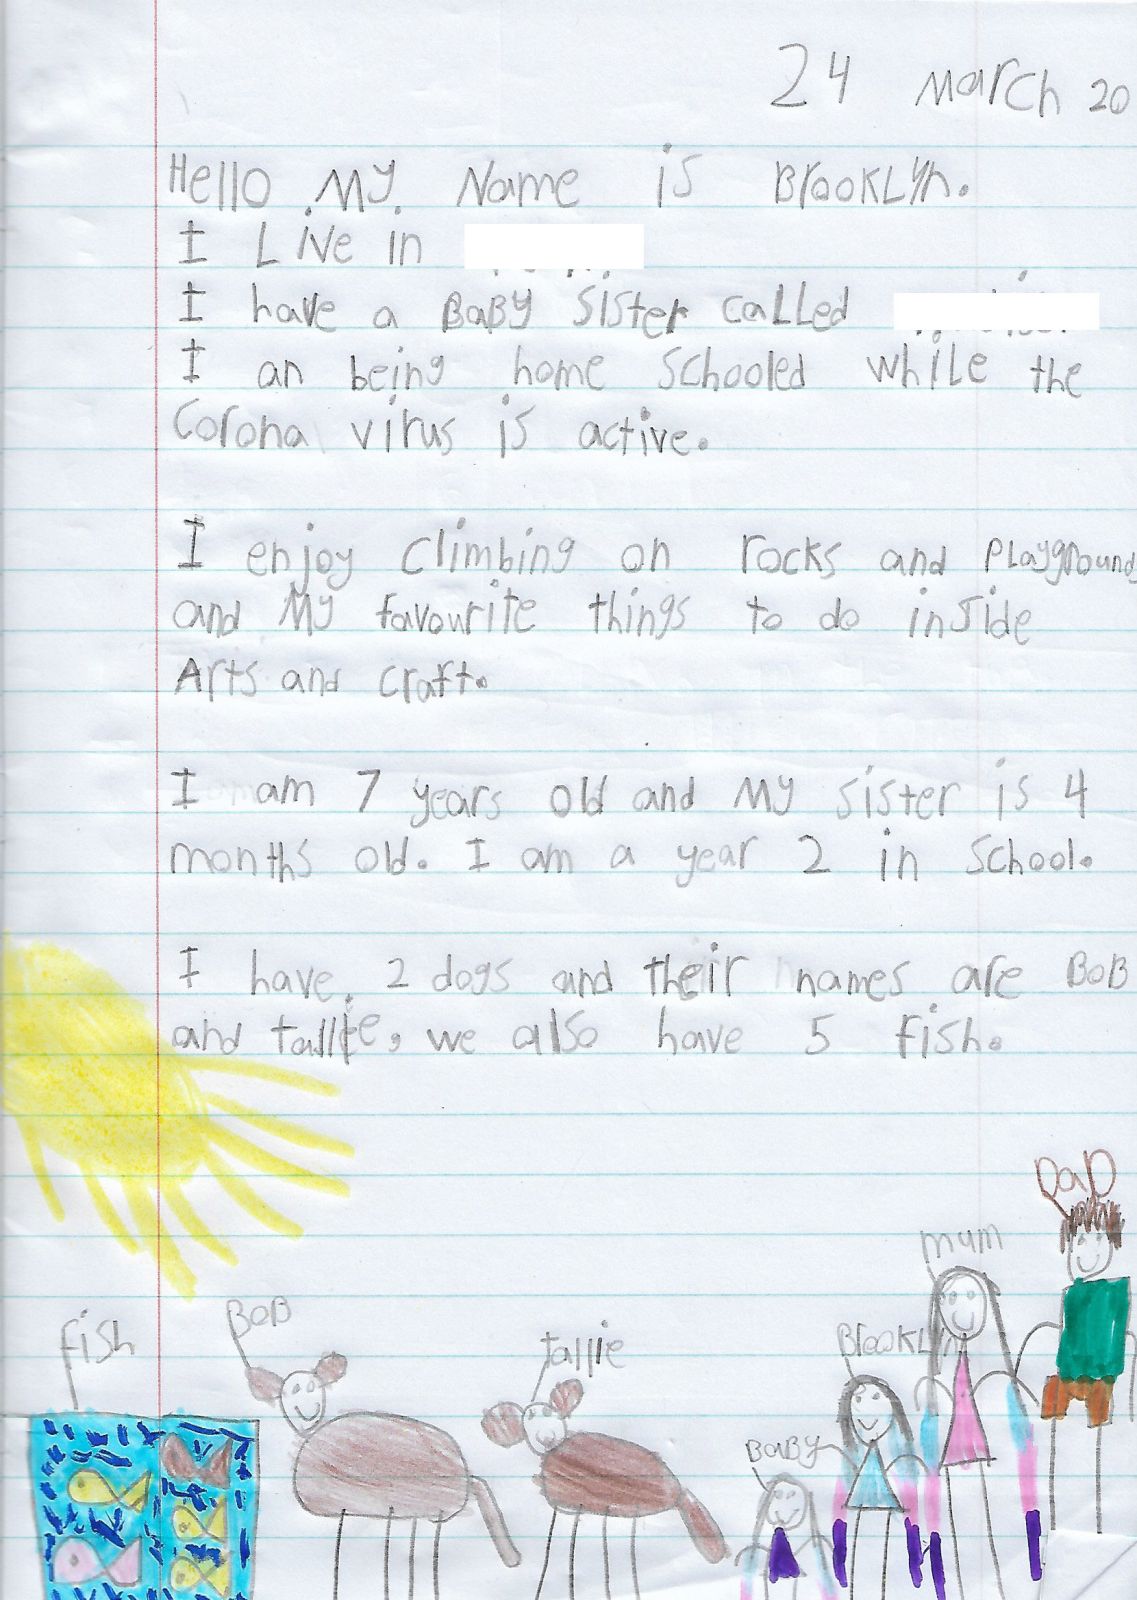 24 March 20
Hello My Name is BrooKLyn.
I Live in
I have a BaBy Sister called
I an being home Schooled while the
Corona virus is active.
I enjoy climbing on rocks and playground
and My favourite things to do inside
Arts and craft.
I am 7 years old and My sister is 4
months old. I am a year 2 in School.
I have. 2 dogs and their names are BoB
and tallie. we also have 5 fish.
DaD
mum
BoB
fish
tallie
BrooKLyn
BaBy